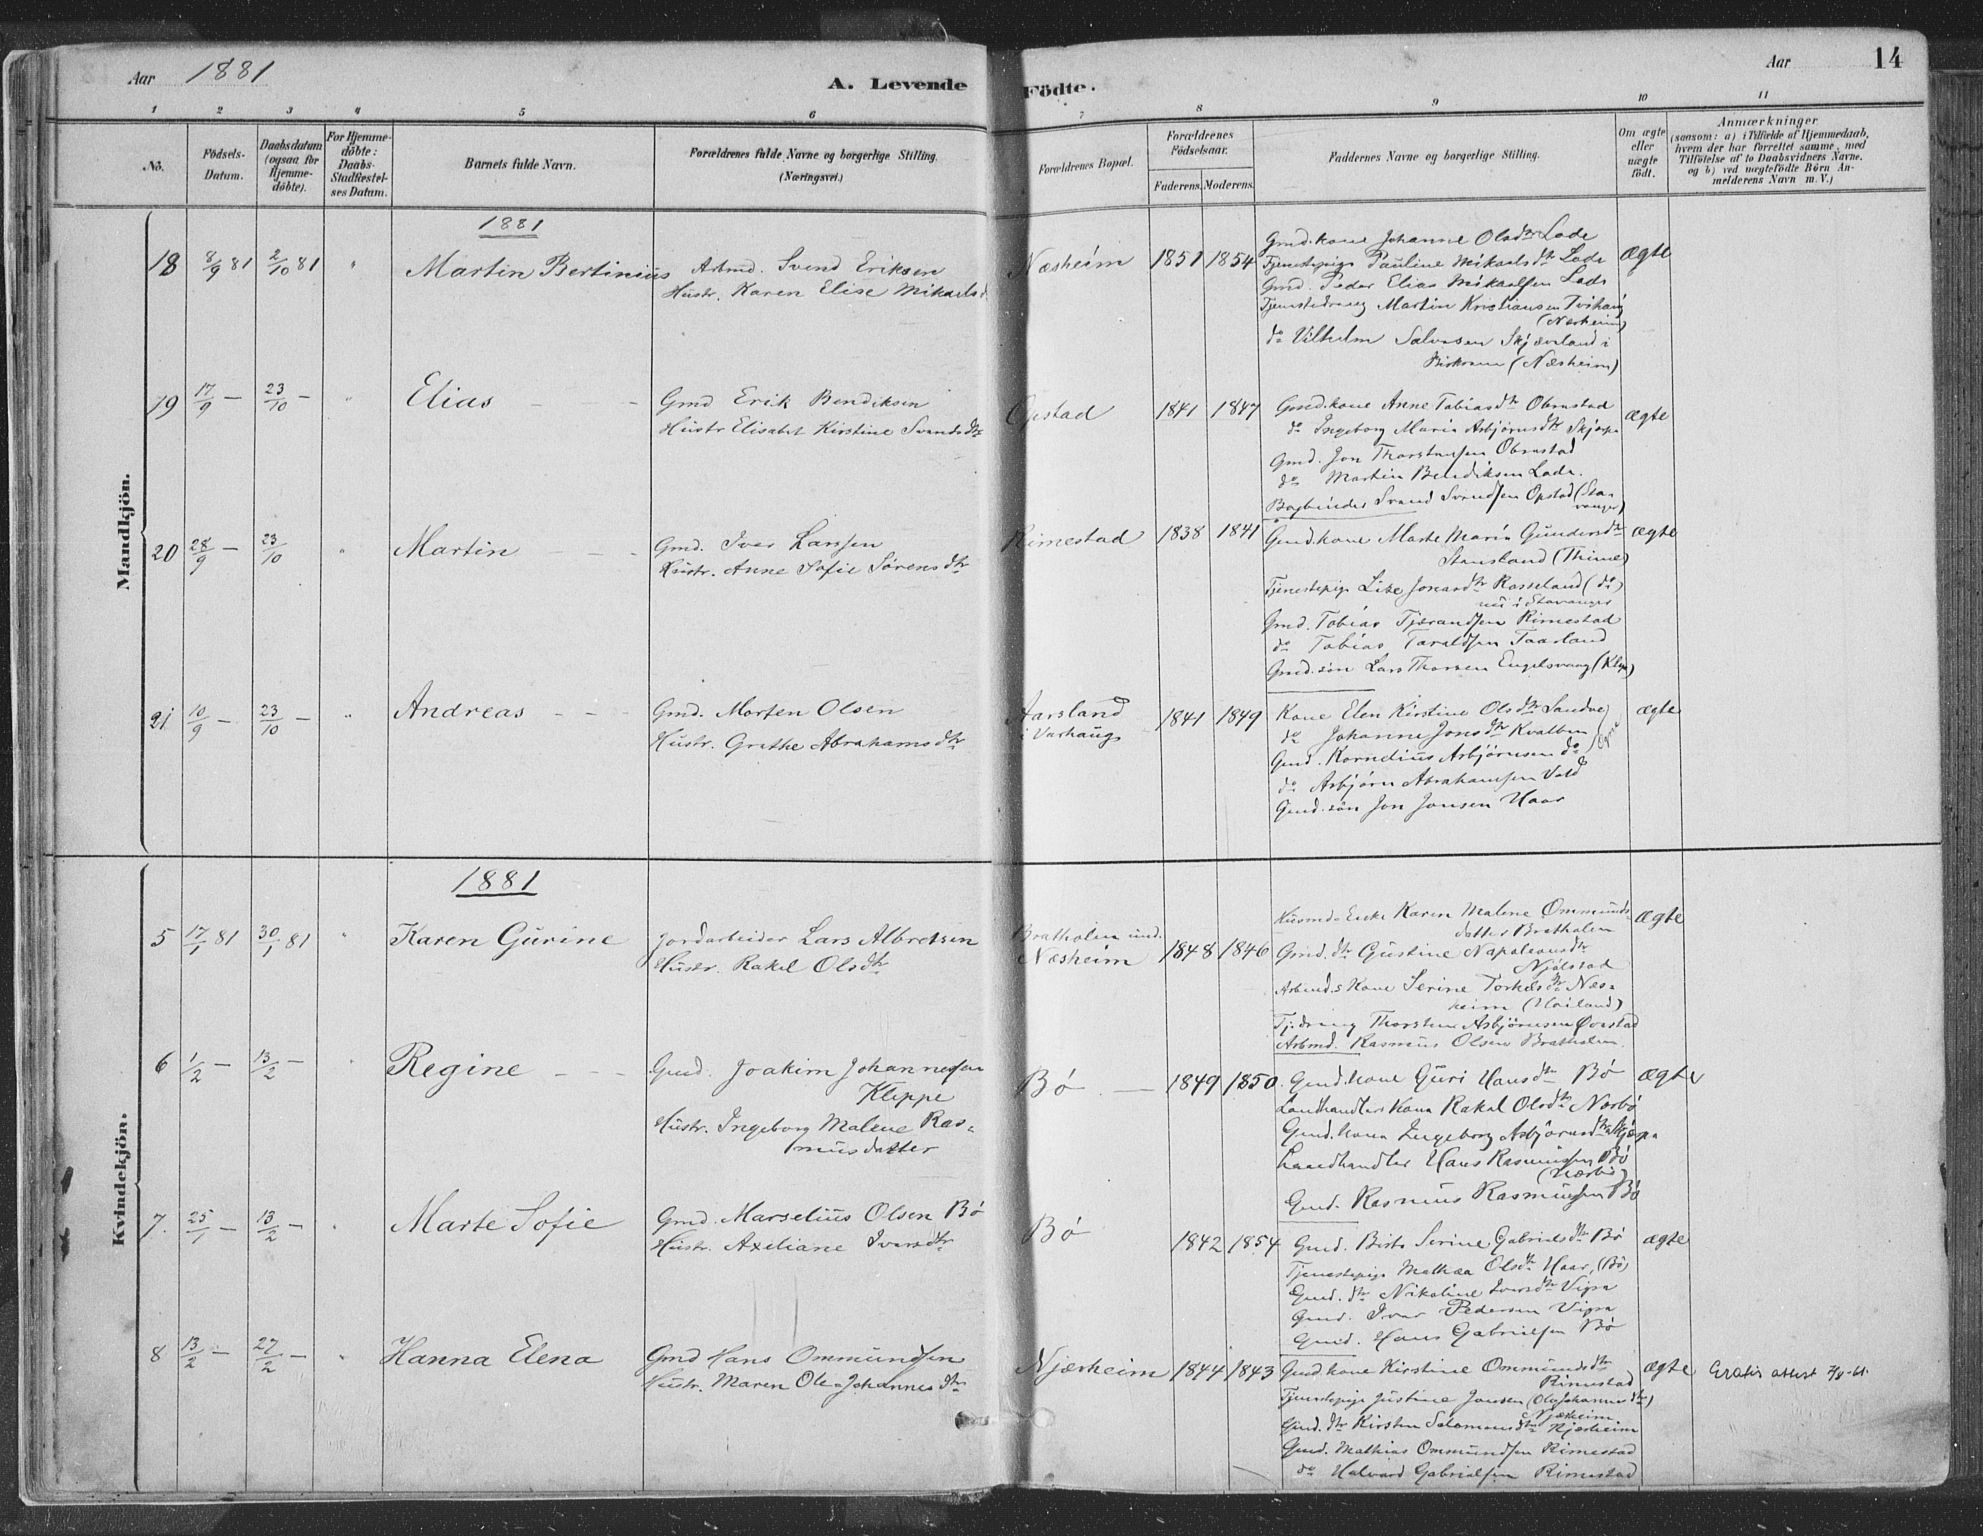 Aar 1881
A. Levende Födte.
Aar
14
1 2 3 4 5 6 7 8 9 10 11
No.
Födsels-
Datum.
Daabsdatum
(ogsaa for
Hjemme-
döbte).
For Hjemme-
döbte:
Daabs-
Stadfæstel-
ses Datum.
Barnets fulde Navn.
Forældrenes fulde Navne og borgerlige Stilling.
(Næringsvei.)
Forældrenes Bopæl.
Forældrenes
Födselsaar.
Faderens. Moderens.
Faddernes Navne og borgerlige Stilling.
Om ægte
eller
uægte
födt.
Anmærkninger
(saasom: a) i Tilfælde af Hjemmedaab,
hvem der har forrettet samme, med
Tilföielse af to Daabsvidners Navne.
og b) ved uægtefödte Börn An-
melderens Navn m. V.)
Mandkjön.
1881
18 8/9 81 2/10 81 " Martin Bertinius
Arbmd. Svend Eriksen
Hustr. Karen Elise Mikaelsd.
Næsheim 1851 1854
Gmd.kone Johanne Olsdtr Lode
Tjenestepige Pauline Mikaelsdtr Lode
Gmd. Peder Elias Mikaelsen Lode
Tjenestedreng Martin Kristiansen
(Næsheim)
do Vilhelm Salvesen Skjæveland i
(Næsheim)
ægte
19 17/9 — 23/10 — " Elias
Gmd Erik Bendiksen
Hustr Elisabet Kirstine Svendsdtr
Opstad 1841 1847
Gmd.kone Anne Tobiasdtr Obrestad
do Ingeborg Maria Asbjørnsdtr
Gmd. Jon Thorstensen Obrestad
do Martin Bendiksen Lode.
Bogbinder Svend Svendsen Opstad (Sta-
vanger)
ægte
20 28/9 — 23/10 " Martin
Gmd. Iver Larssen
Hustr. Anne Sofie Sørensdtr
Rimestad 1838 1841
Gmd.kone Marte Maria Gundersdtr
(Thime)
Tjenestepige Lise Jonasdtr Rosseland (do)
nu i Stavanger
Gmd. Tobias Tjerandsen Rimestad
do Tobias Taraldsen Taarland
Gmd.søn Lars Thorsen Engelsvaag (Klep)
ægte
21 10/9 — 23/10 — " Andreas
Gmd. Morten Olsen
Hustr. Grethe Abrahamsdtr
Aarsland
i Varhaug 1841 1849
Kone Elen Kirstine Olsdtr Sandve
do Johanne Jonsdtr Kvalben
Gmd. Kornelius Asbjørnsen do
do Asbjørn Abrahamsen
Gmd.søn Jon Jonsen Haar
ægte
Kvindekjön.
1881
5 17/1 81 30/1 81 " Karen Gurine
Jordarbeider Lars Albretsen
Hustr. Rakel Olsdtr
Bratholen und.
Næsheim 1848 1846
Husmds Enke Karen Malene Ommunds-
datter Bratholen
Gmd.dtr Gustine Napoleonsdtr
Njølstad
Arbmds Kone Serine Torkelsdtr Næs-
heim (Hoiland)
Tj.dreng Thorsten Asbjørnsen
Arbmd. Rasmus Olsen Bratholen.
ægte
6 1/2 — 13/2 — " Regine
Gmd. Joakim Johannessen
Kleppe
Hustr. Ingeborg Malene Ras-
musdatter
Bø 1849 1850
Gmd.kone Guri Hansdtr Bø
Landhandlers Kone Rakel Olsdtr Nærbø
Gmd.kone Ingeborg Asbjørnsdtr
Landhandler Hans Rasmussen Bø
(Nærbø)
Gmd. Rasmus Rasmussen Bø
ægte
7. 25/1 — 13/2 — " Marte Sofie
Gmd. Marselius Olsen Bø
Hustr. Axeliane Iversdtr
Bø 1842 1854
Gmd. Serine Gabrielsdtr Bø
Tjenestepige Mathea Olsdtr Haar, (Bø)
Gmd.dtr Nikoline Iversdtr Vigra
Gmd. Iver Pedersen Vigra
Gmd. Hans Gabrielsen Bø
ægte
8 13/2 — 27/2 — " Hanna Elena
Gmd Hans Ommundsen
Hustr. Maren Olea Johannesdtr
Njærheim 1844 1843
Gmd.kone Kirstine Ommundsdtr
Rimestad
Tjenestepige Justine Jonsen (Olea Johannesdtr)
Njærheim
Gmd.dtr Kirsten Salomonsdtr Njærheim
Gmd. Mathias Ommundsen Rimestad
do Halvard Gabrielsen Rimestad
ægte
Gratis attest